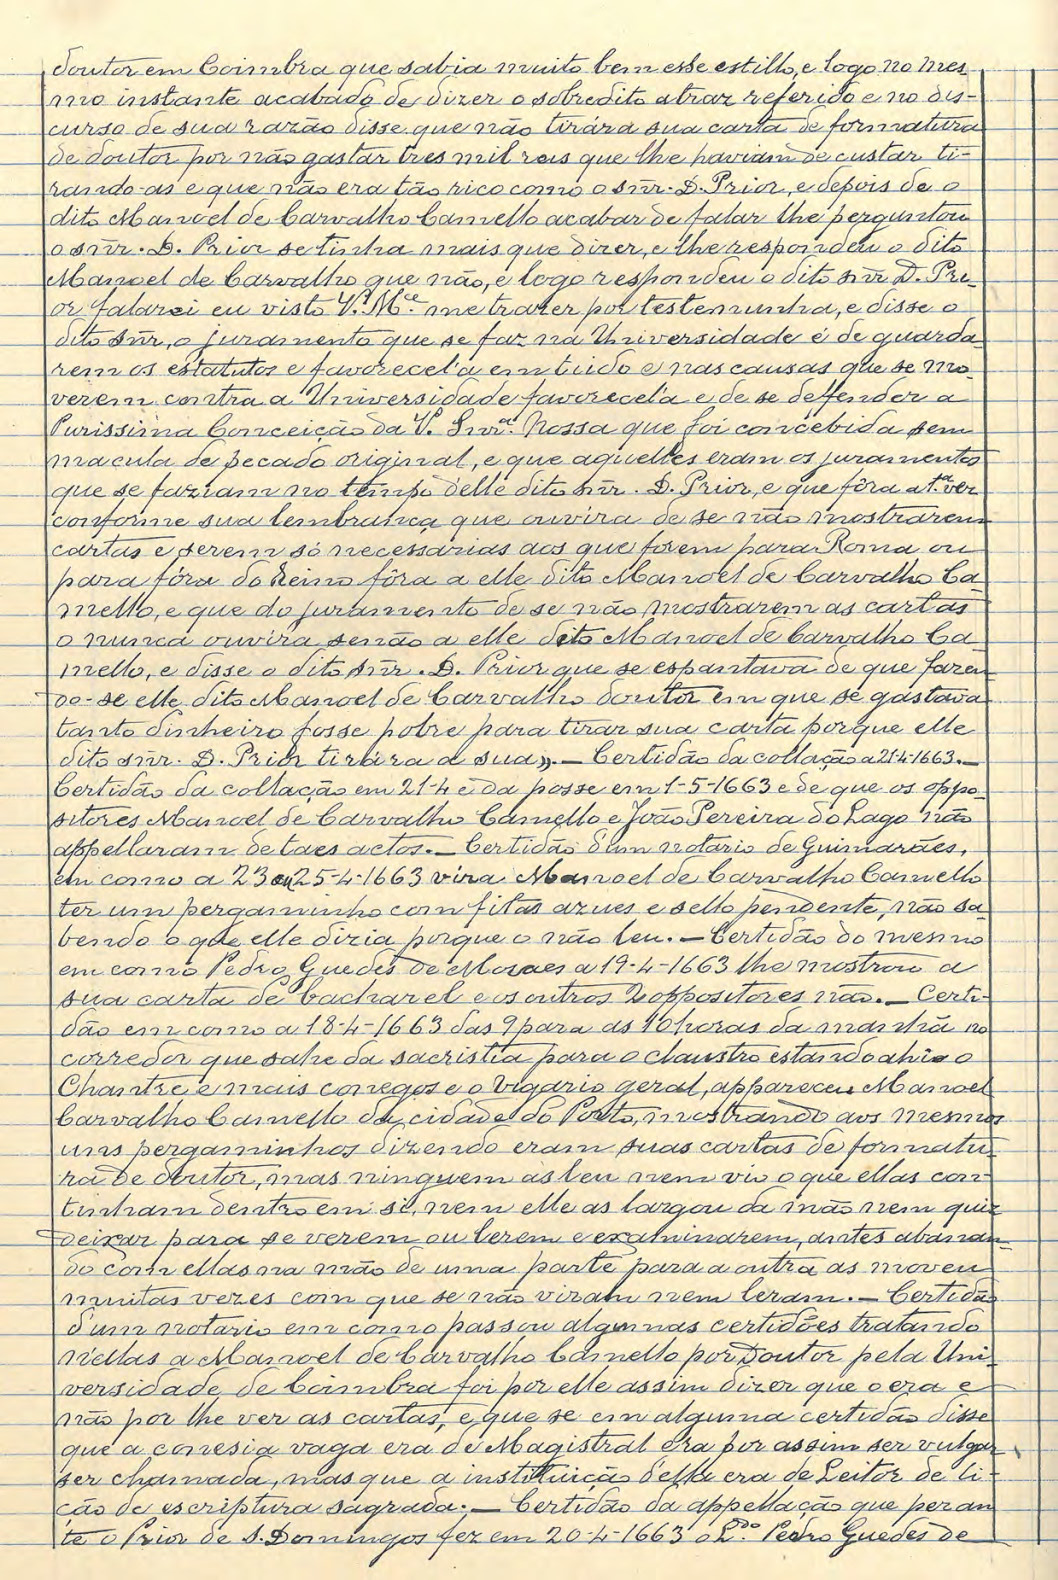 doutor em Coimbra que sabia muito bem esse estillo, e logo no mes-
mo instante acabado de dizer o sobredito atraz referido e no dis-
curso de sua razão disse que não tirára sua carta de formatura
de doutor por não gastar tres mil reis que lhe haviam de custar ti-
rando-as e que não era tão rico como o snr. D. Prior, e depois de o
dito Manoel de Carvalho Camello acabar de falar lhe perguntou
o snr. D. Prior se tinha mais que dizer, e lhe respondeu o dito
Manoel de Carvalho que não, e logo respondeu o dito snr D. Pri-
or falarei eu visto V. M.ce me trazer por testemunha, e disse o
dito snr, o juramento que se faz na Universidade é de guarda-
rem os estatutos e favorecel'a em tudo e nas causas que se mo-
verem contra a Universidade favorecel'a e de se deffender a
Purissima Conceição da V. Snr.a Nossa que foi concebida sem
macula de pecado original, e que aquelles eram os juramentos
que se faziam no tempo delle dito snr. D. Prior, e que fôra a t.al ver
conforme sua lembrança que ouvira de se não mostrarem
cartas e serem só necessarias aos que forem para Roma ou
para fóra do Reino fôra a elle dito Manoel de Carvalho Ca-
mello, e que do juramento de se não mostrarem as cartas
o nunca ouvira senão a elle dito Manoel de Carvalho Ca-
mello, e disse o dito snr. D. Prior que se espantava de que fazen-
do-se elle dito Manoel de Carvalho doutor em que se gastava
tanto dinheiro fosse pobre para tirar sua carta porque elle
dito snr. D. Prior tirára a sua». — Certidão da collação a 21-4-1663. —
Certidão da collação em 21-4 e da posse em 1-5-1663 e de que os oppo-
sitores Manoel de Carvalho Camello e João Pereira do Lago não
appellaram de taes actos. — Certidão d'um notario de Guimarães,
em como a 23 ou 25-4-1663 vira Manoel de Carvalho Camello
ter um pergaminho com fitas azues e sello pendente, não sa-
bendo o que elle dizia porque o não leu. — Certidão do mesmo
em como Pedro Guedes de Moraes a 19-4-1663 lhe mostrou a
sua carta de bacharel e os outros 2 oppositores não. — Certi-
dão em como a 18-4-1663 das 9 para as 10 horas da manhã no
corredor que sahe da sacristia para o claustro estando ahi o
Chantre e mais conegos e o Vigario geral, appareceu Manoel
Carvalho Camello da cidade do Porto, mostrando aos mesmos
uns pergaminhos dizendo eram suas cartas de formatu-
ra de doutor, mas ninguem as leu nem viu o que ellas con-
tinham dentro em si, nem elle as largou da mão nem quiz
deixar para se verem ou lerem e examinarem, antes abanan-
do com ellas na mão de uma parte para a outra as moveu
muitas vezes com que se não viram nem leram. — Certidão
d'um notario em como passou algumas certidões tratando
n'ellas a Manoel de Carvalho Camello por Doutor pela Uni-
versidade de Coimbra foi por elle assim dizer que o era e
não por lhe ver as cartas, e que se em alguma certidão disse
que a conesia vaga era de Magistral era por assim ser vulgar
ser chamada, mas que a instituição d'ella era de Leitor de li-
ção de escriptura sagrada. — Certidão da appellação que peran-
te o Prior de S. Domingos fez em 20-4-1663 o L.do Pedro Guedes de